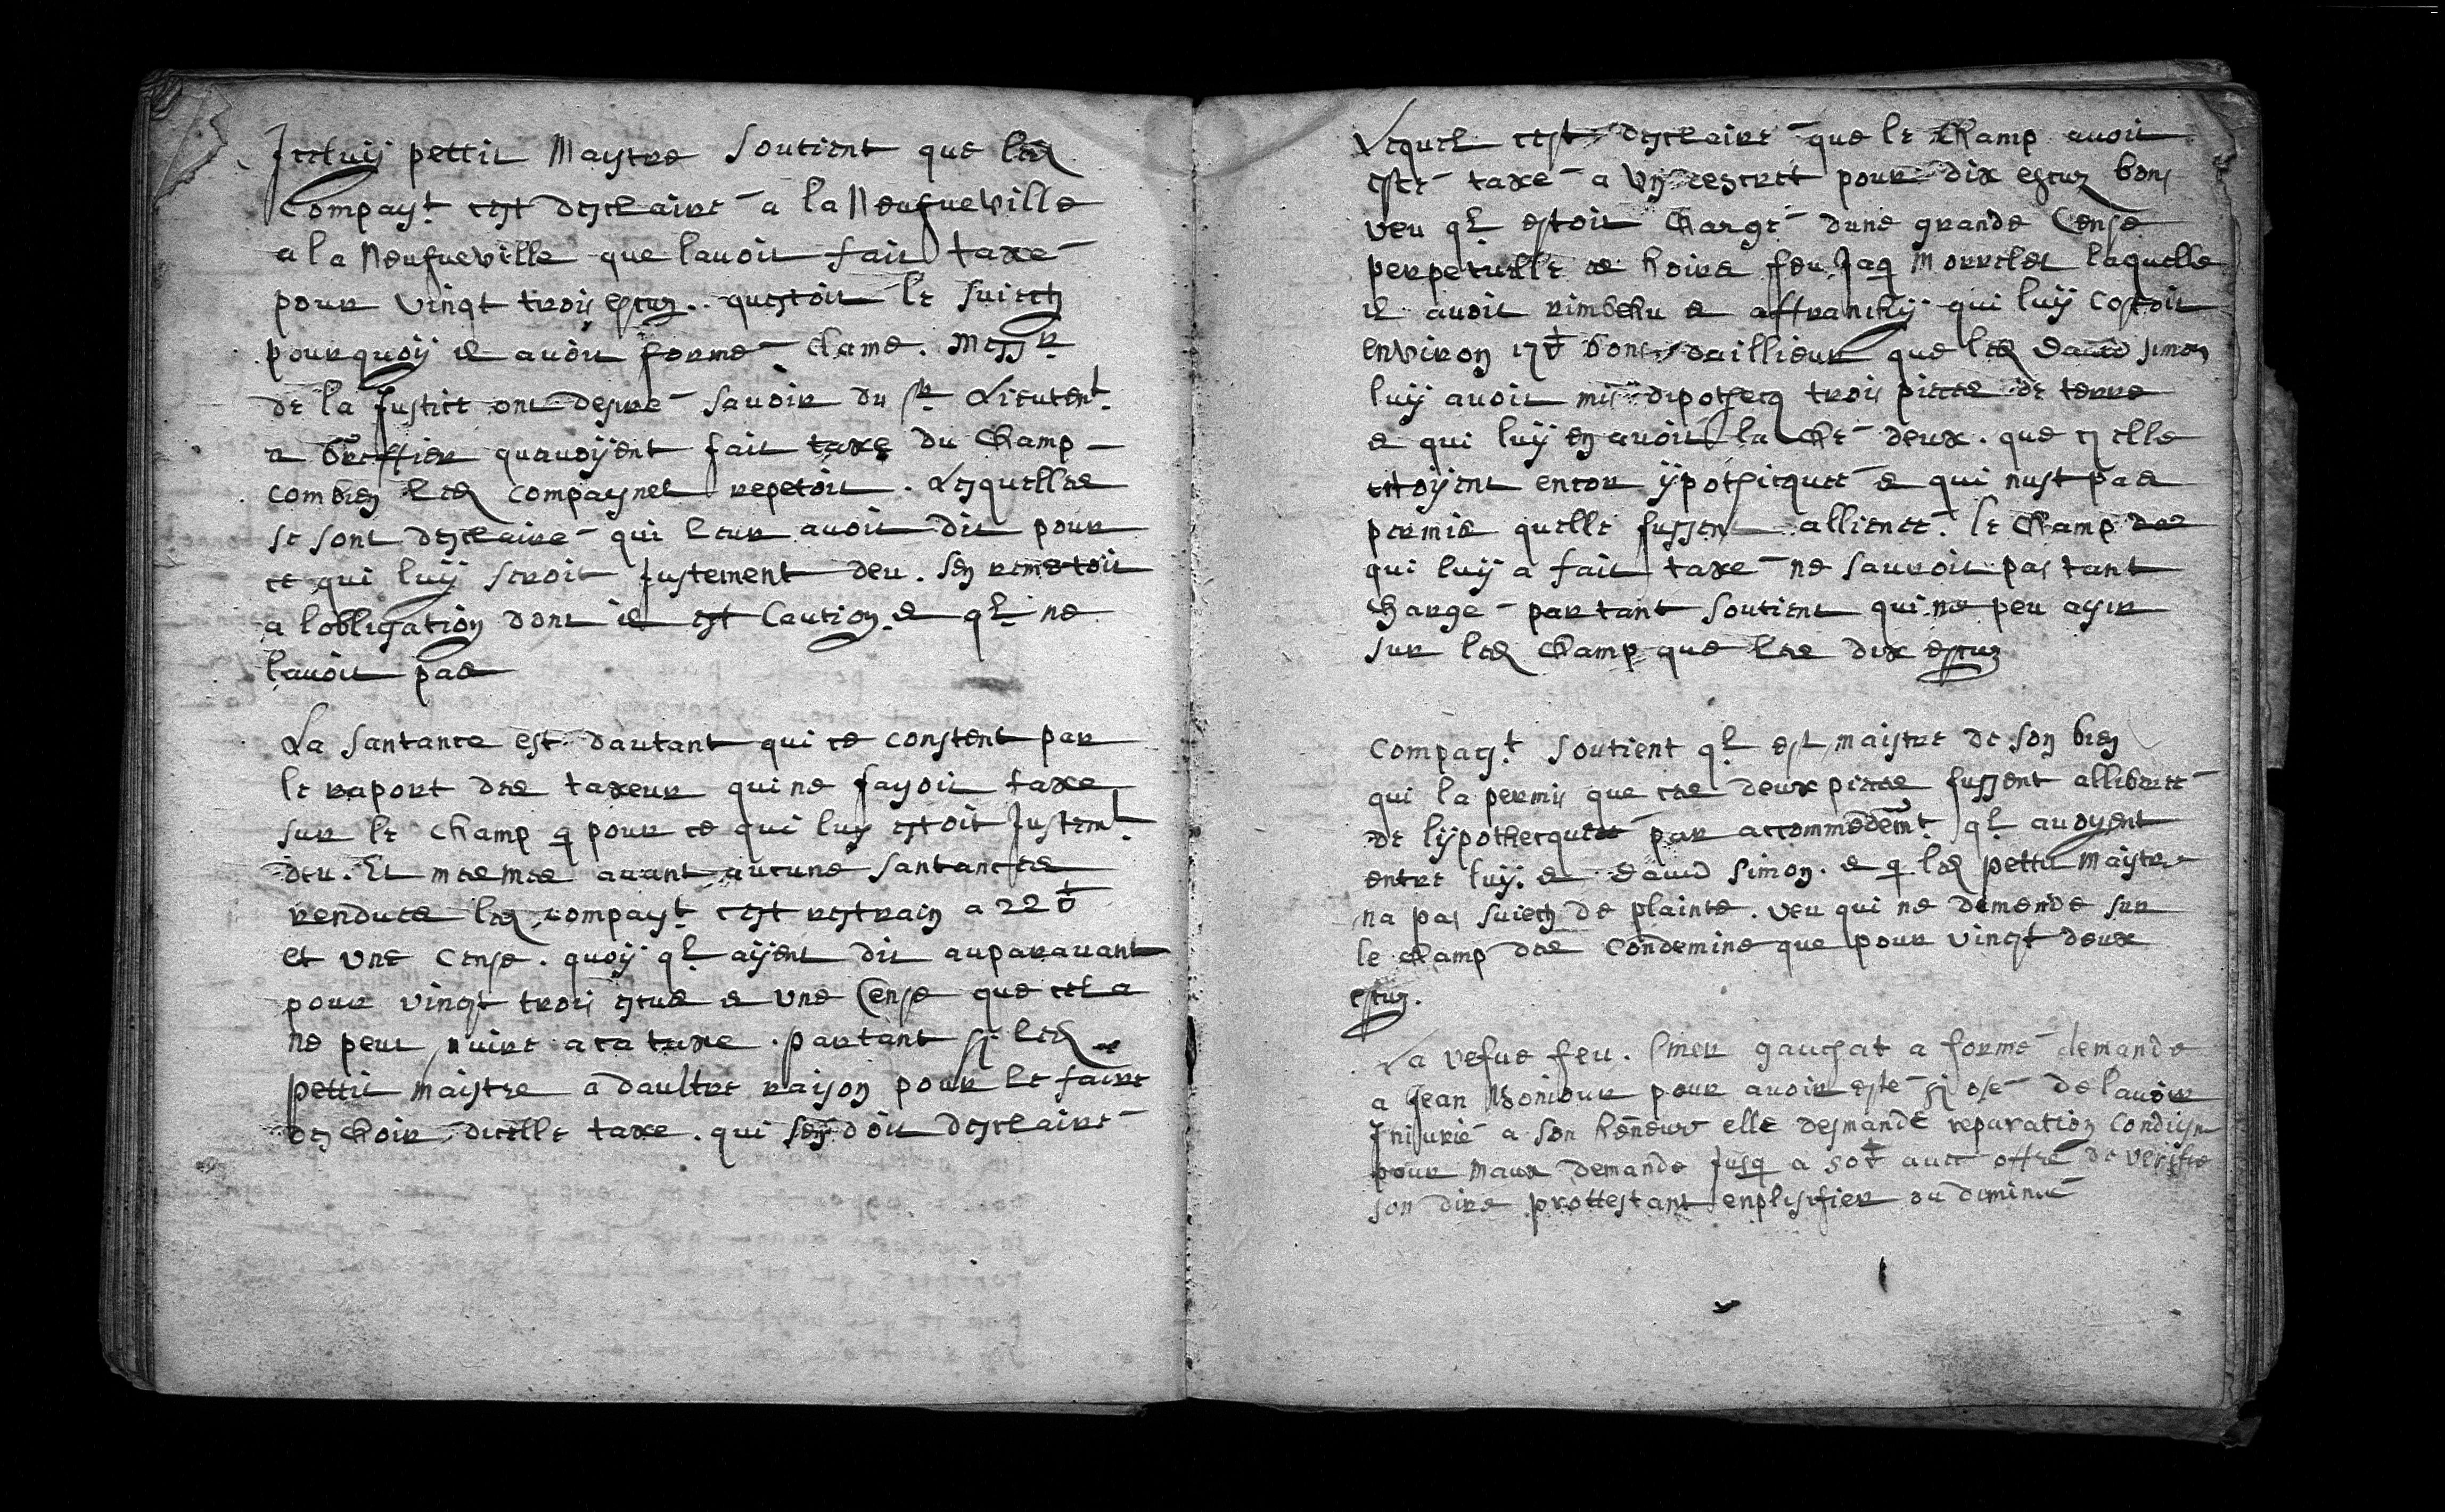 Jceluy pettit Maystre soutient que led
Compayt c'est desclairé a la Neufueville
a la Neufueville que lauoit fait taxé
pour vingt trois escuz. questoit le suiect
pourquoÿ il auoit formé clame. Messrs
de la Justice ont desiré sauoir du sr Lieutent
& Greffier quauoÿent fait taxe du champ
combien led compaynet repetoit. Lesquelles
se sont desclairé qui leur auoit dit pour
ce qui luÿ seroit Justement deu. sen remetoit
a lobligation dont il est Caution & ql ne
lauoit pas
La santance est dautant qui ce constent par
le raport des taxeur qui ne fasoit taxe
sur le champ q pour ce qui luy estoit Justemt
deu. Et mesmes auant aucune santances
rendues led compayt c'est restrain a 22
et vne cense. quoÿ ql aÿent dit auparauant
pour vingt trois escus & vne Cense que cela
ne peut nuire a ca taxe. partant si led
pettit maistre a daultre raison pour le faire
deschoir dicelle taxe. qui sen doit desclairé
Lequel c'est desclairé que le champ auoit
esté taxé a vn pour dix escuz bons
veu ql estoit chargé dune grande Cense
perpetuelle es hoirs feu Jaq Morrelet laquelle
il auoit rimbchu & affranchÿ qui luÿ costoit
environ 17 bons dailleur que led Dauid simon
luÿ auoit mis dipothecq trois pieces de terre
& qui luÿ en auoit laché deux. que si elle
estoÿent encor ÿpothecquée & qui nust pas
permis quelle fussent allienée. le champ
qui luÿ a fait taxé ne sauroit pas tant
chargé partant soutient qui ne peu agir
sur led champ que les dix escuz
Compayt soutient ql est maistre de son bien
qui la permis que ces deux pieces fussent alliberée
de lÿpothecque par accommodemt ql auoyent
entre luÿ. & Dauid simon. & q led pettit Maystre
na pas suiect de plainte. veu qui ne demende sur
le champ des Condemine que pour vingt deux
escuz.
La vefue feu. Imer gauchat a formé demande
a Jean Boniour pour auoir esté si osé de lauoir
Iniurié a son honneur elle desmande reparation condigne
pour maux demande Jusq a 50 auec offre de verifié
son dire prottestant enplisifier ou diminué